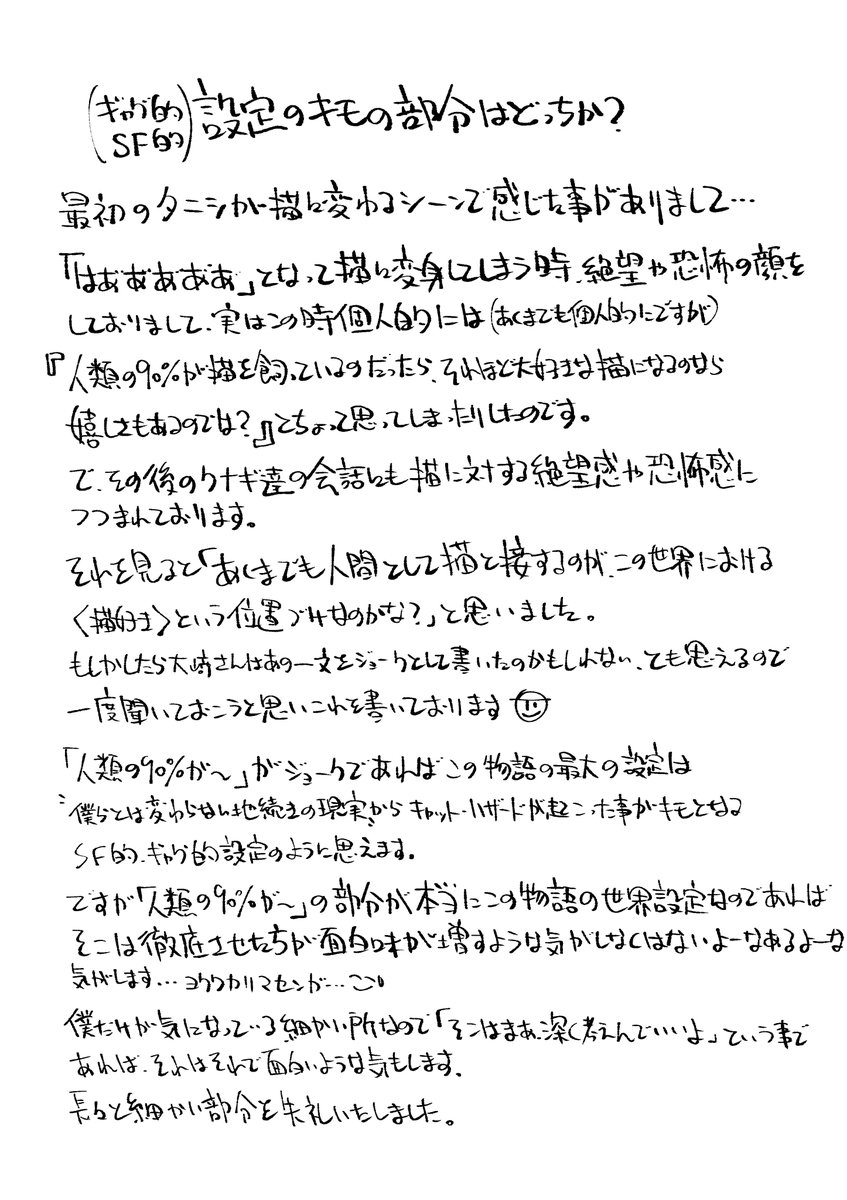 (ギャグ的 SF的)設定のキモの部分はどっちか?
最初のタニシが猫に変わるシーンで感じた事がありまして…
「はああああああ」となって猫に変身してしまう時、絶望や恐怖の顔を
しておりまして、実はこの時個人的には(あくまでも個人的にですが)
『人類の90%が猫を飼っているのだったら、それほど大好きな猫になるのなら
嬉しさもあるのでは?』とちょって思ってしまったりしたのです。
で、その後のクナギ達の会話にも猫に対する絶望感や恐怖感に
つつまれております。
それを見ると「あくまでも人間として猫と接するのが、この世界における
〈猫好き〉という位置づけなのかな?」と思いました。
もしかしたら大崎さんはあの一文をジョークとして書いたのかもしれない、とも思えるので
一度聞いておこうと思いこれを書いております
「人類の90%が〜」がジョークであればこの物語の最大の設定は
〝僕らとは変わらない地続きの現実〟からキャット・ハザードが起こった事がキモとなる
SF的、ギャグ的設定のように思えます。
ですが「人類の90%が〜」の部分が本当にこの物語の世界設定なのであれば
そこは徹底させた方が面白味が増すような気がしなくはないよーなあるよーな
気がします…ヨクワカリマセンが…
僕だけが気になっている細かい所なので「そこはまあ、深く考えんでいいよ」という事で
あれば、それはそれで面白いような気もします。
長々と細かい部分を失礼いたしました。